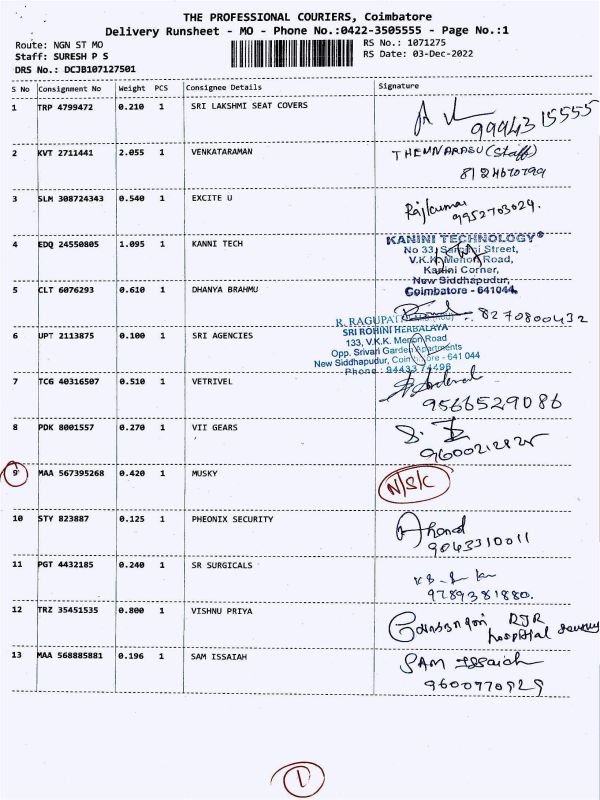 THE PROFESSIONAL COURIERS, Coimbatore
Delivery Runsheet - MO - Phone No.:0422-3505555 - Page No.:1
Route: NGN ST MO
RS No.: 1071275
Staff: SURESH P S
RS Date: 03-Dec-2022
DRS No.: DCJB107127501
S No Consignment No Weight PCS Consignee Details Signature
1 TRP 4799472 0.210 1 SRI LAKSHMI SEAT COVERS
9994315555
2 KVT 2711441 2.055 1 VENKATARAMAN THENNARASU (Staff)
3 SLM 308724343 0.540 1 EXCITE U Rajkumar
9952703029.
4 EDQ 24550805 1.095 1 KANNI TECH
KANINI TECHNOLOGY
No 33, Street,
V.K.K. Menon Road,
Kanini Corner,
New Siddhapudur,
Coimbatore - 641044.
5 CLT 6076293 0.610 1 DHANYA BRAHMU
8270800432
R. RAGUPATHI
SRI ROHINI HERBALAYA
133, V.K.K. Menon Road
Opp. Srivari Garden Apartments
New Siddhapudur, Coimbatore - 641 044
Phone : 94433 74496
6 UPT 2113875 0.100 1 SRI AGENCIES
7 TCG 40316507 0.510 1 VETRIVEL
9566529086
8 PDK 8001557 0.270 1 VII GEARS
9 MAA 567395268 0.420 1 MUSKY N/S/C
10 STY 823887 0.125 1 PHEONIX SECURITY
9043310011
11 PGT 4432185 0.240 1 SR SURGICALS
9789381880.
12 TRZ 35451535 0.800 1 VISHNU PRIYA
RJR
hospital
13 MAA 568885881 0.196 1 SAM ISSAIAH SAM ISSaiah
1